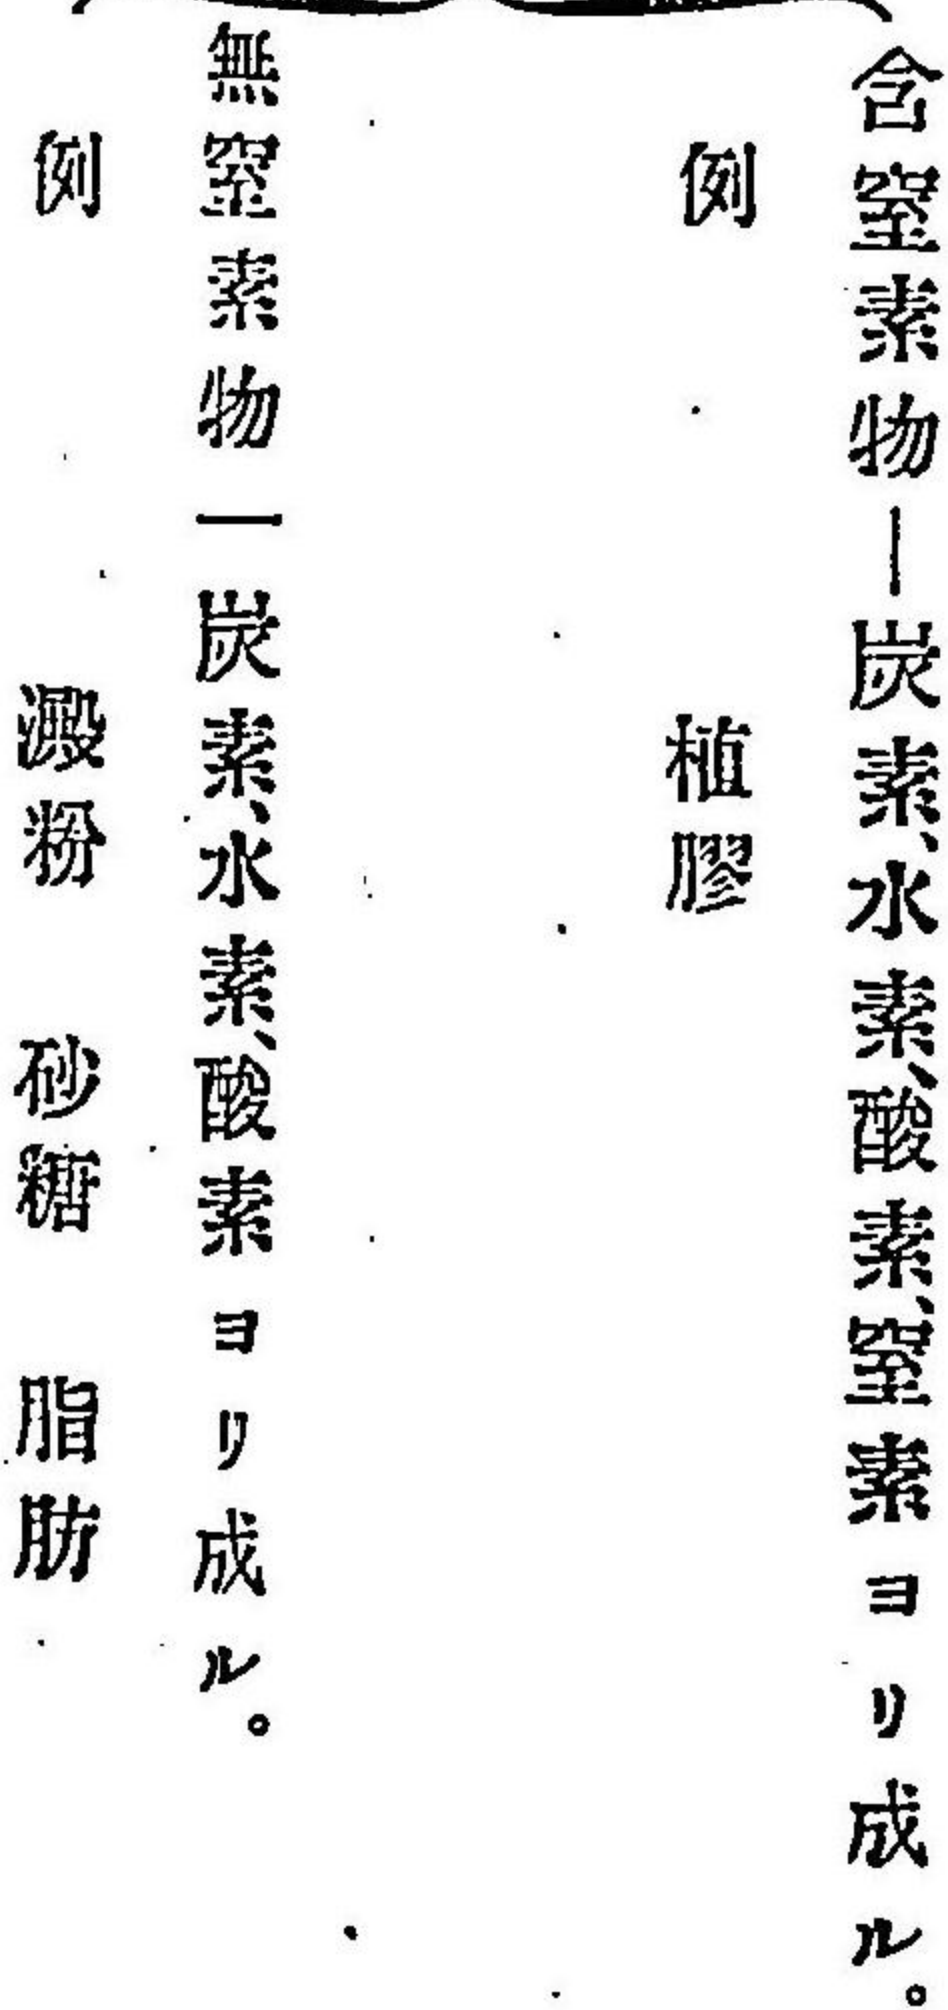 含窒素物―炭素、水素、酸素、窒素ヨリ成ル。
例 植膠
無窒素物―炭素、水素、酸素ヨリ成ル。
例 澱粉 砂糖 脂肪